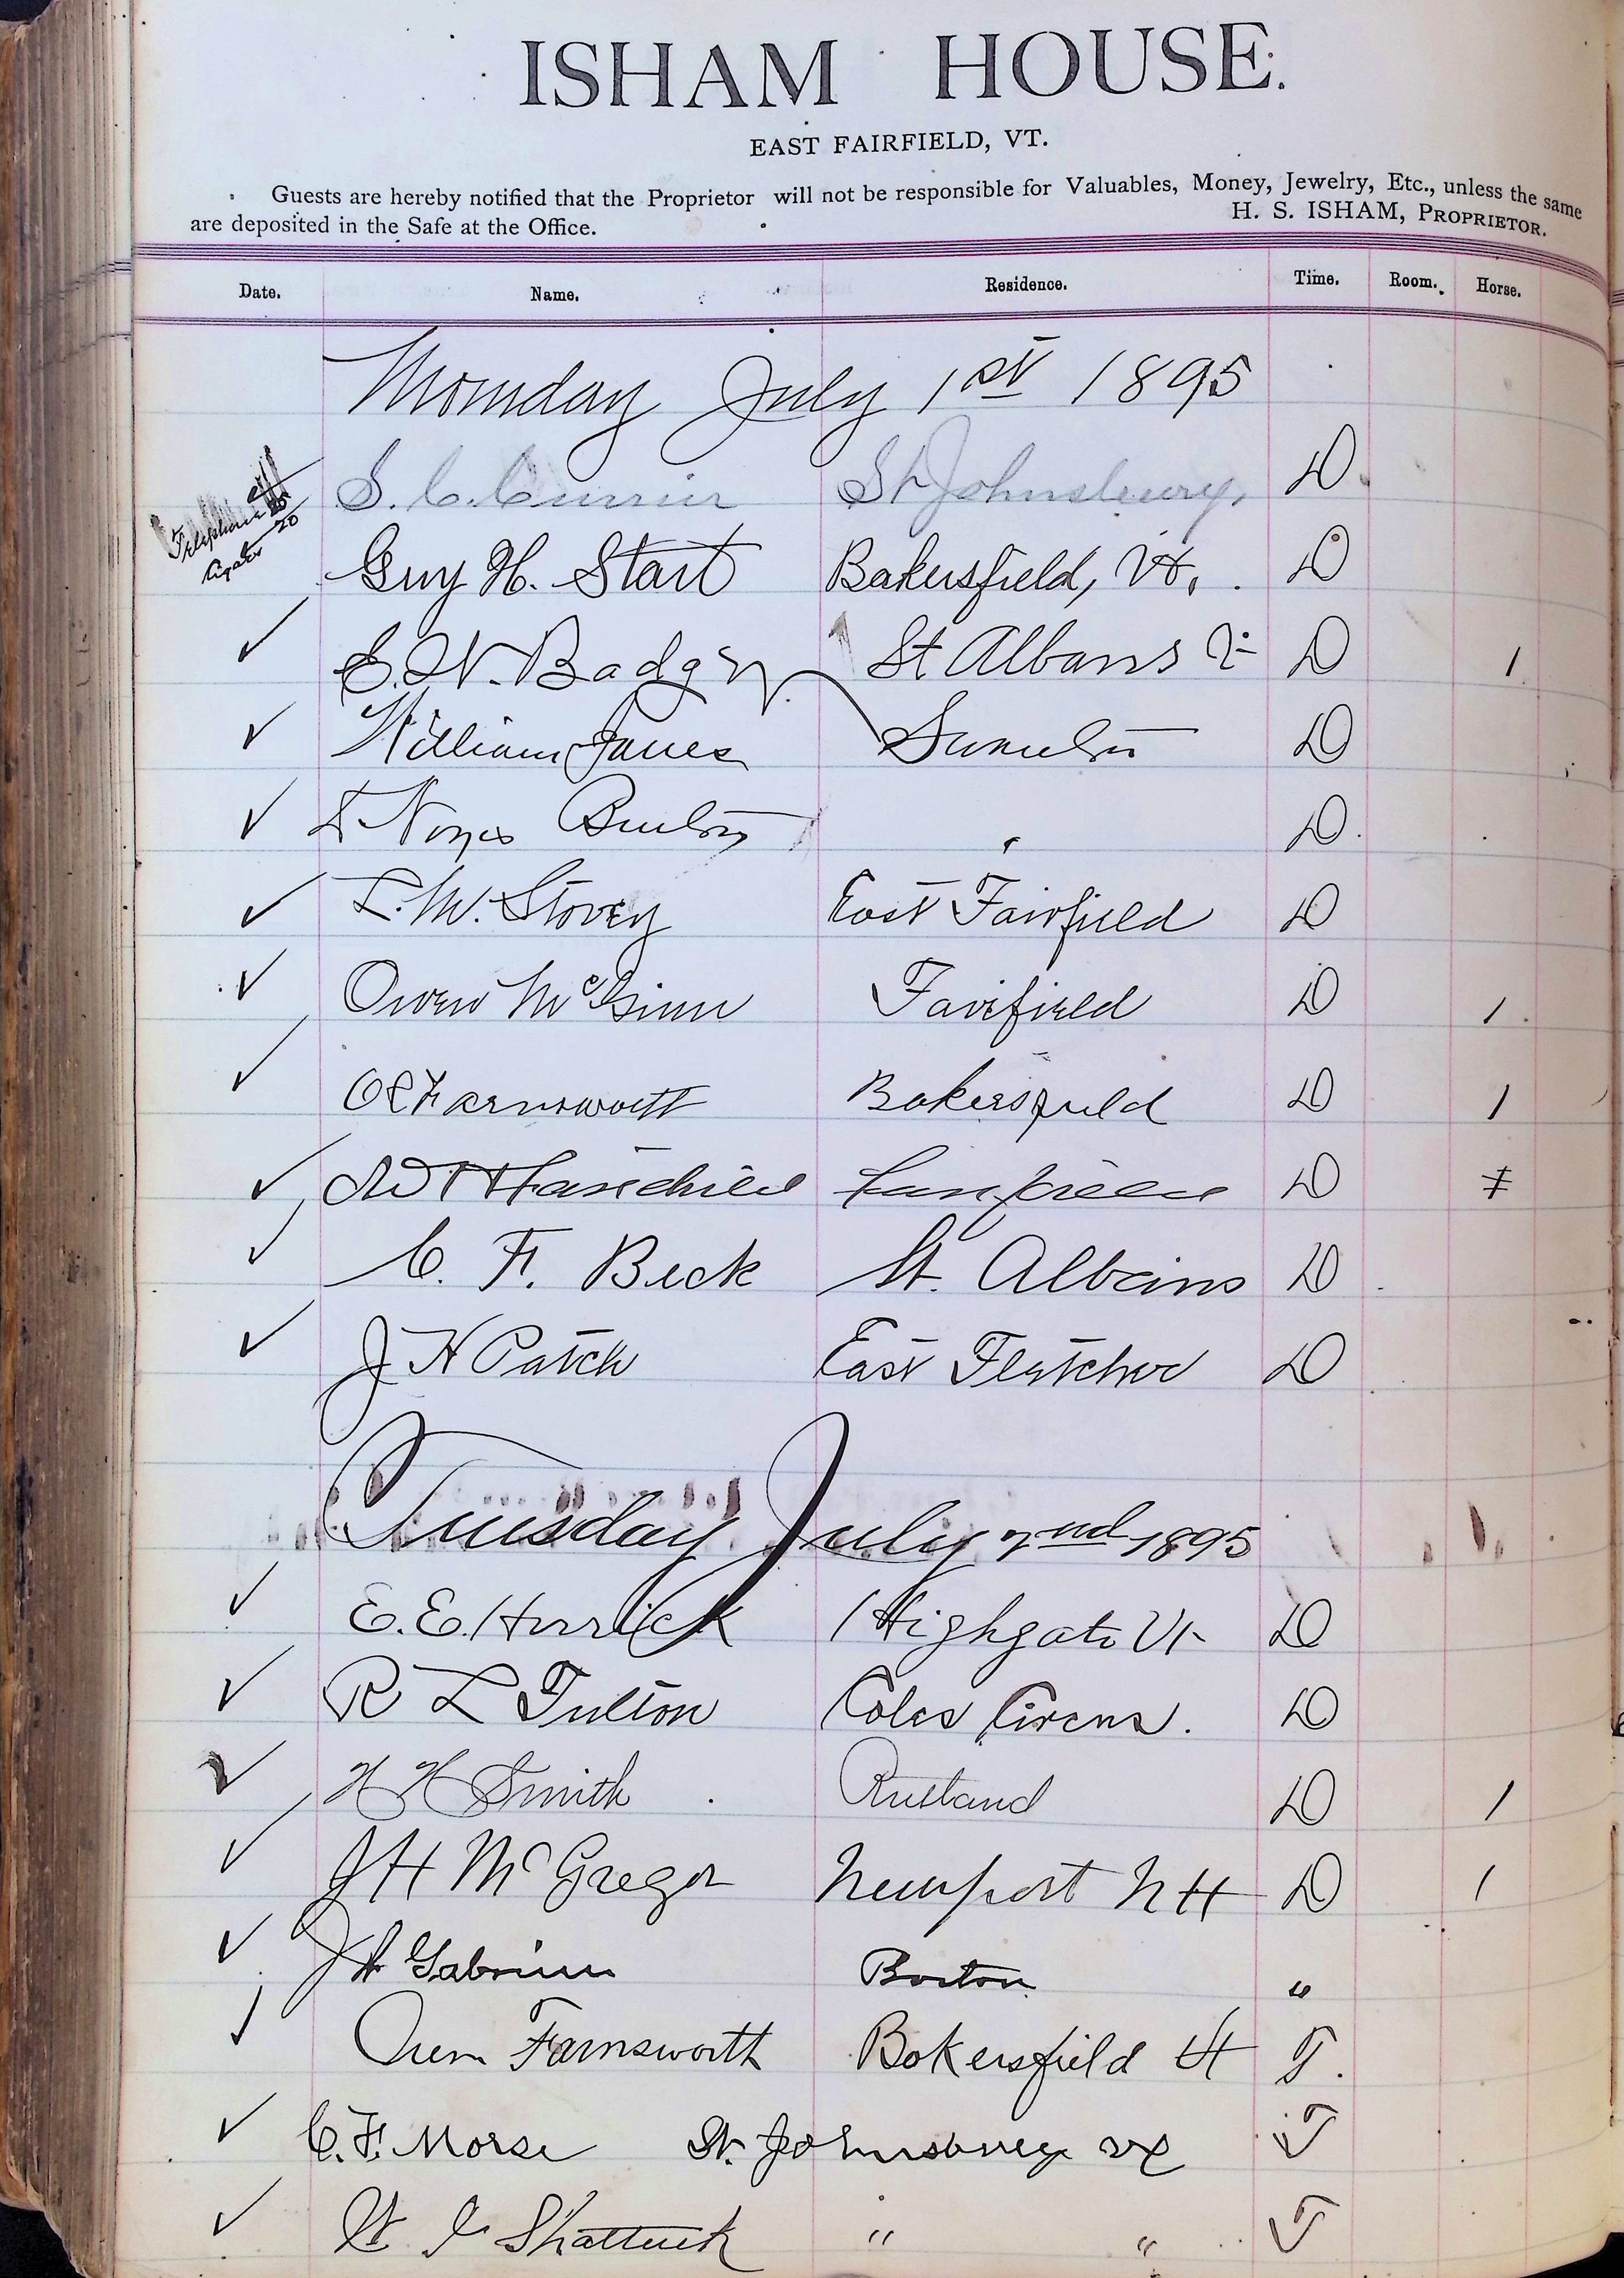 ISHAM HOUSE.
EAST FAIRFIELD, VT.
Guests are hereby notified that the Proprietor will not be responsible for Valuables, Money, Jewelry, Etc., unless the same
are deposited in the Safe at the Office. H. S. ISHAM, PROPRIETOR.
Date. Name. Residence. Time. Room. Horse.
Monday July 1st 1895
S. C. Currier St Johnsbury, D
Telephone 25
Cigars 20
Guy H. Start Bakersfield, Vt. D
✓ E. W. Badger St Albans Vt D 1
✓ William Jones D
✓ Noyes D
✓ L. M. Stovey East Fairfield D
✓ Owen McGinn Fairfield D 1
✓ O C Farnsworth Bakersfield D 1
✓ Fairchild Fairfield D
✓ C. F. Beck St. Albans D
✓ J H Patch East Fletcher D
Tuesday July 2nd 1895
✓ E. E. Herrick Highgate Vt D
✓ R L Fulton Coles Circus. D
✓ H H Smith Rutland D 1
✓ J H McGregor Newport N H D 1
✓ J H Boston "
✓ Oren Farnsworth Bakersfield Vt T.
✓ C. F. Morse St. Johnsbury Vt T
✓ Shattuck " " T